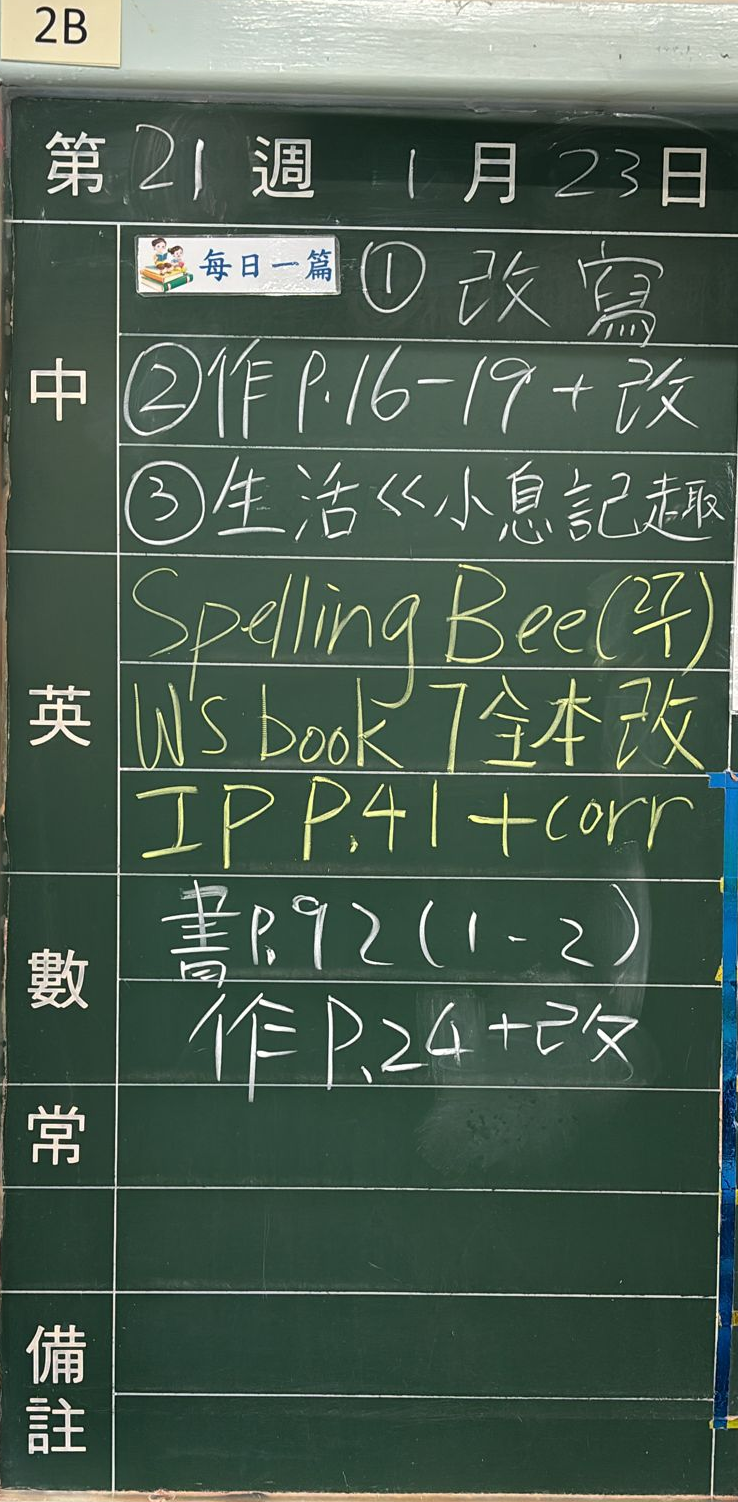 2B
第 21 週 1 月 23 日
中
每日一篇 ① 改寫
② 作 P.16-19 + 改
③ 生活 << 小息記趣
英
Spelling Bee (27/1)
WS book 7 全本改
IP P.41 + corr
數
書 P.92 (1-2)
作 P.24 + 改
常
備註